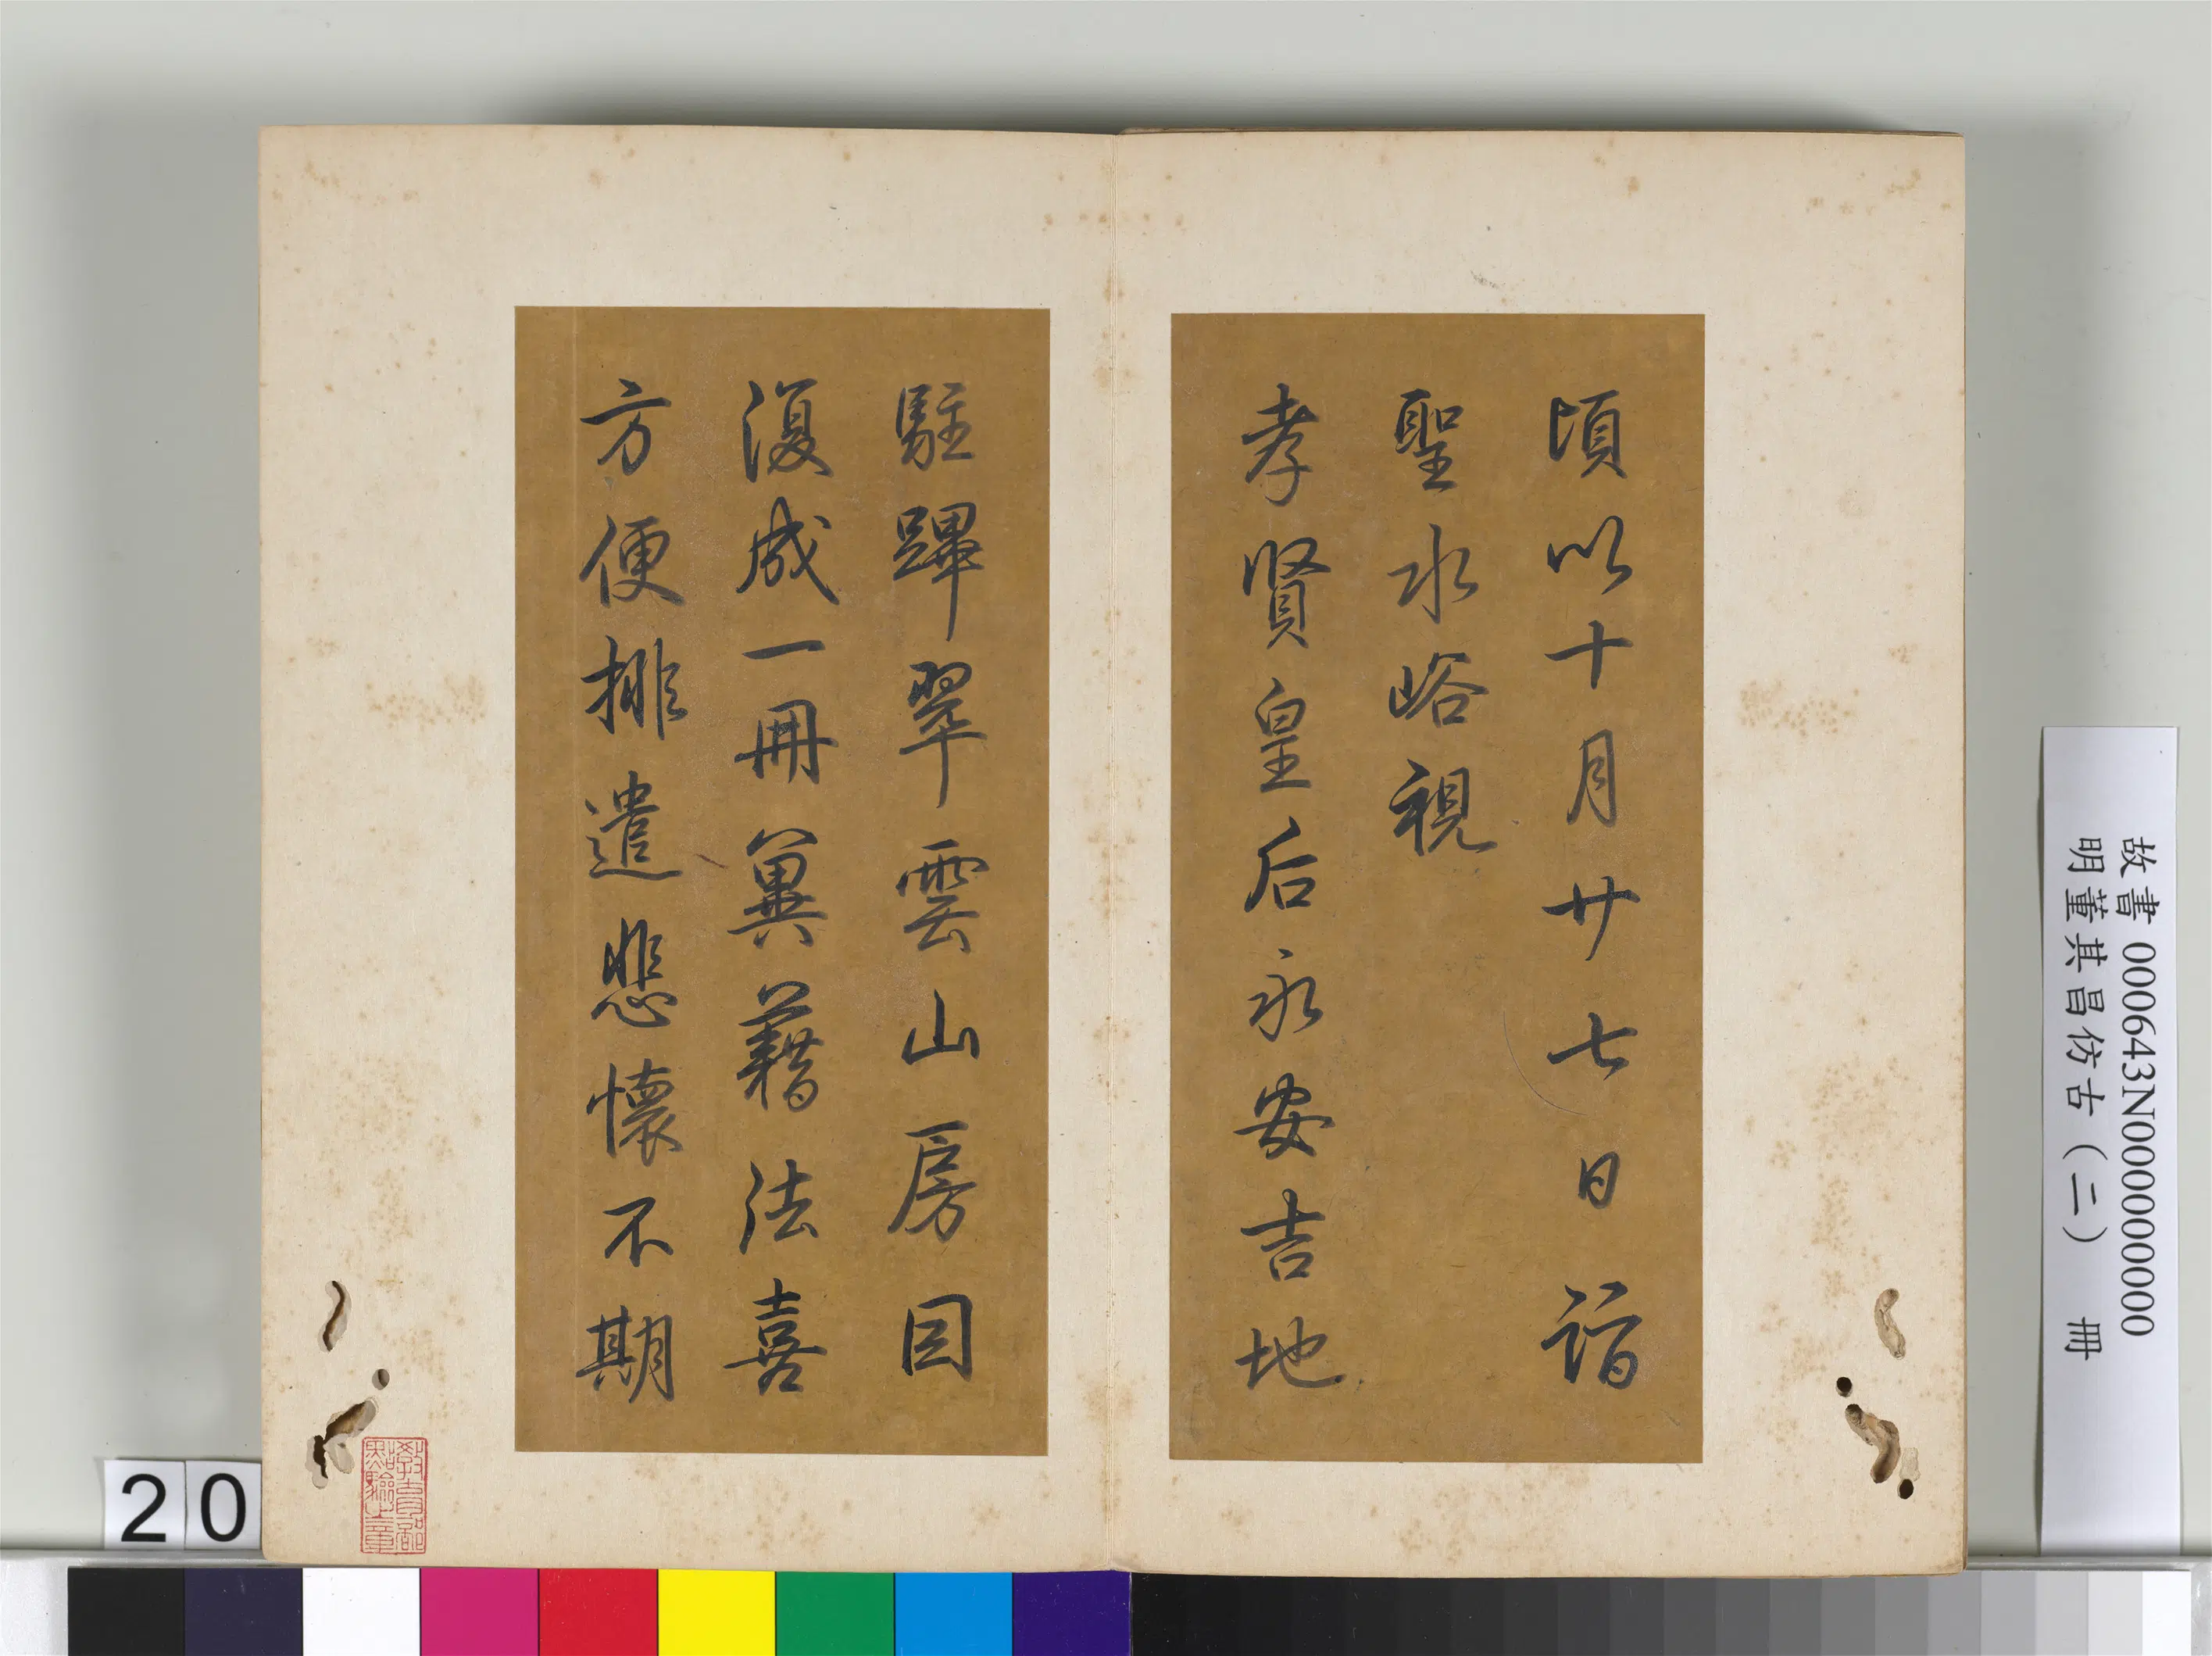 頃以十月廿七日詣
聖水峪視
孝賢皇后永安吉地
駐蹕翠雲山房因
復成一冊冀藉法喜
方便排遣悲懷不期
教育部
點驗之章
故書 000643N000000000
明董其昌仿古(二) 冊
20